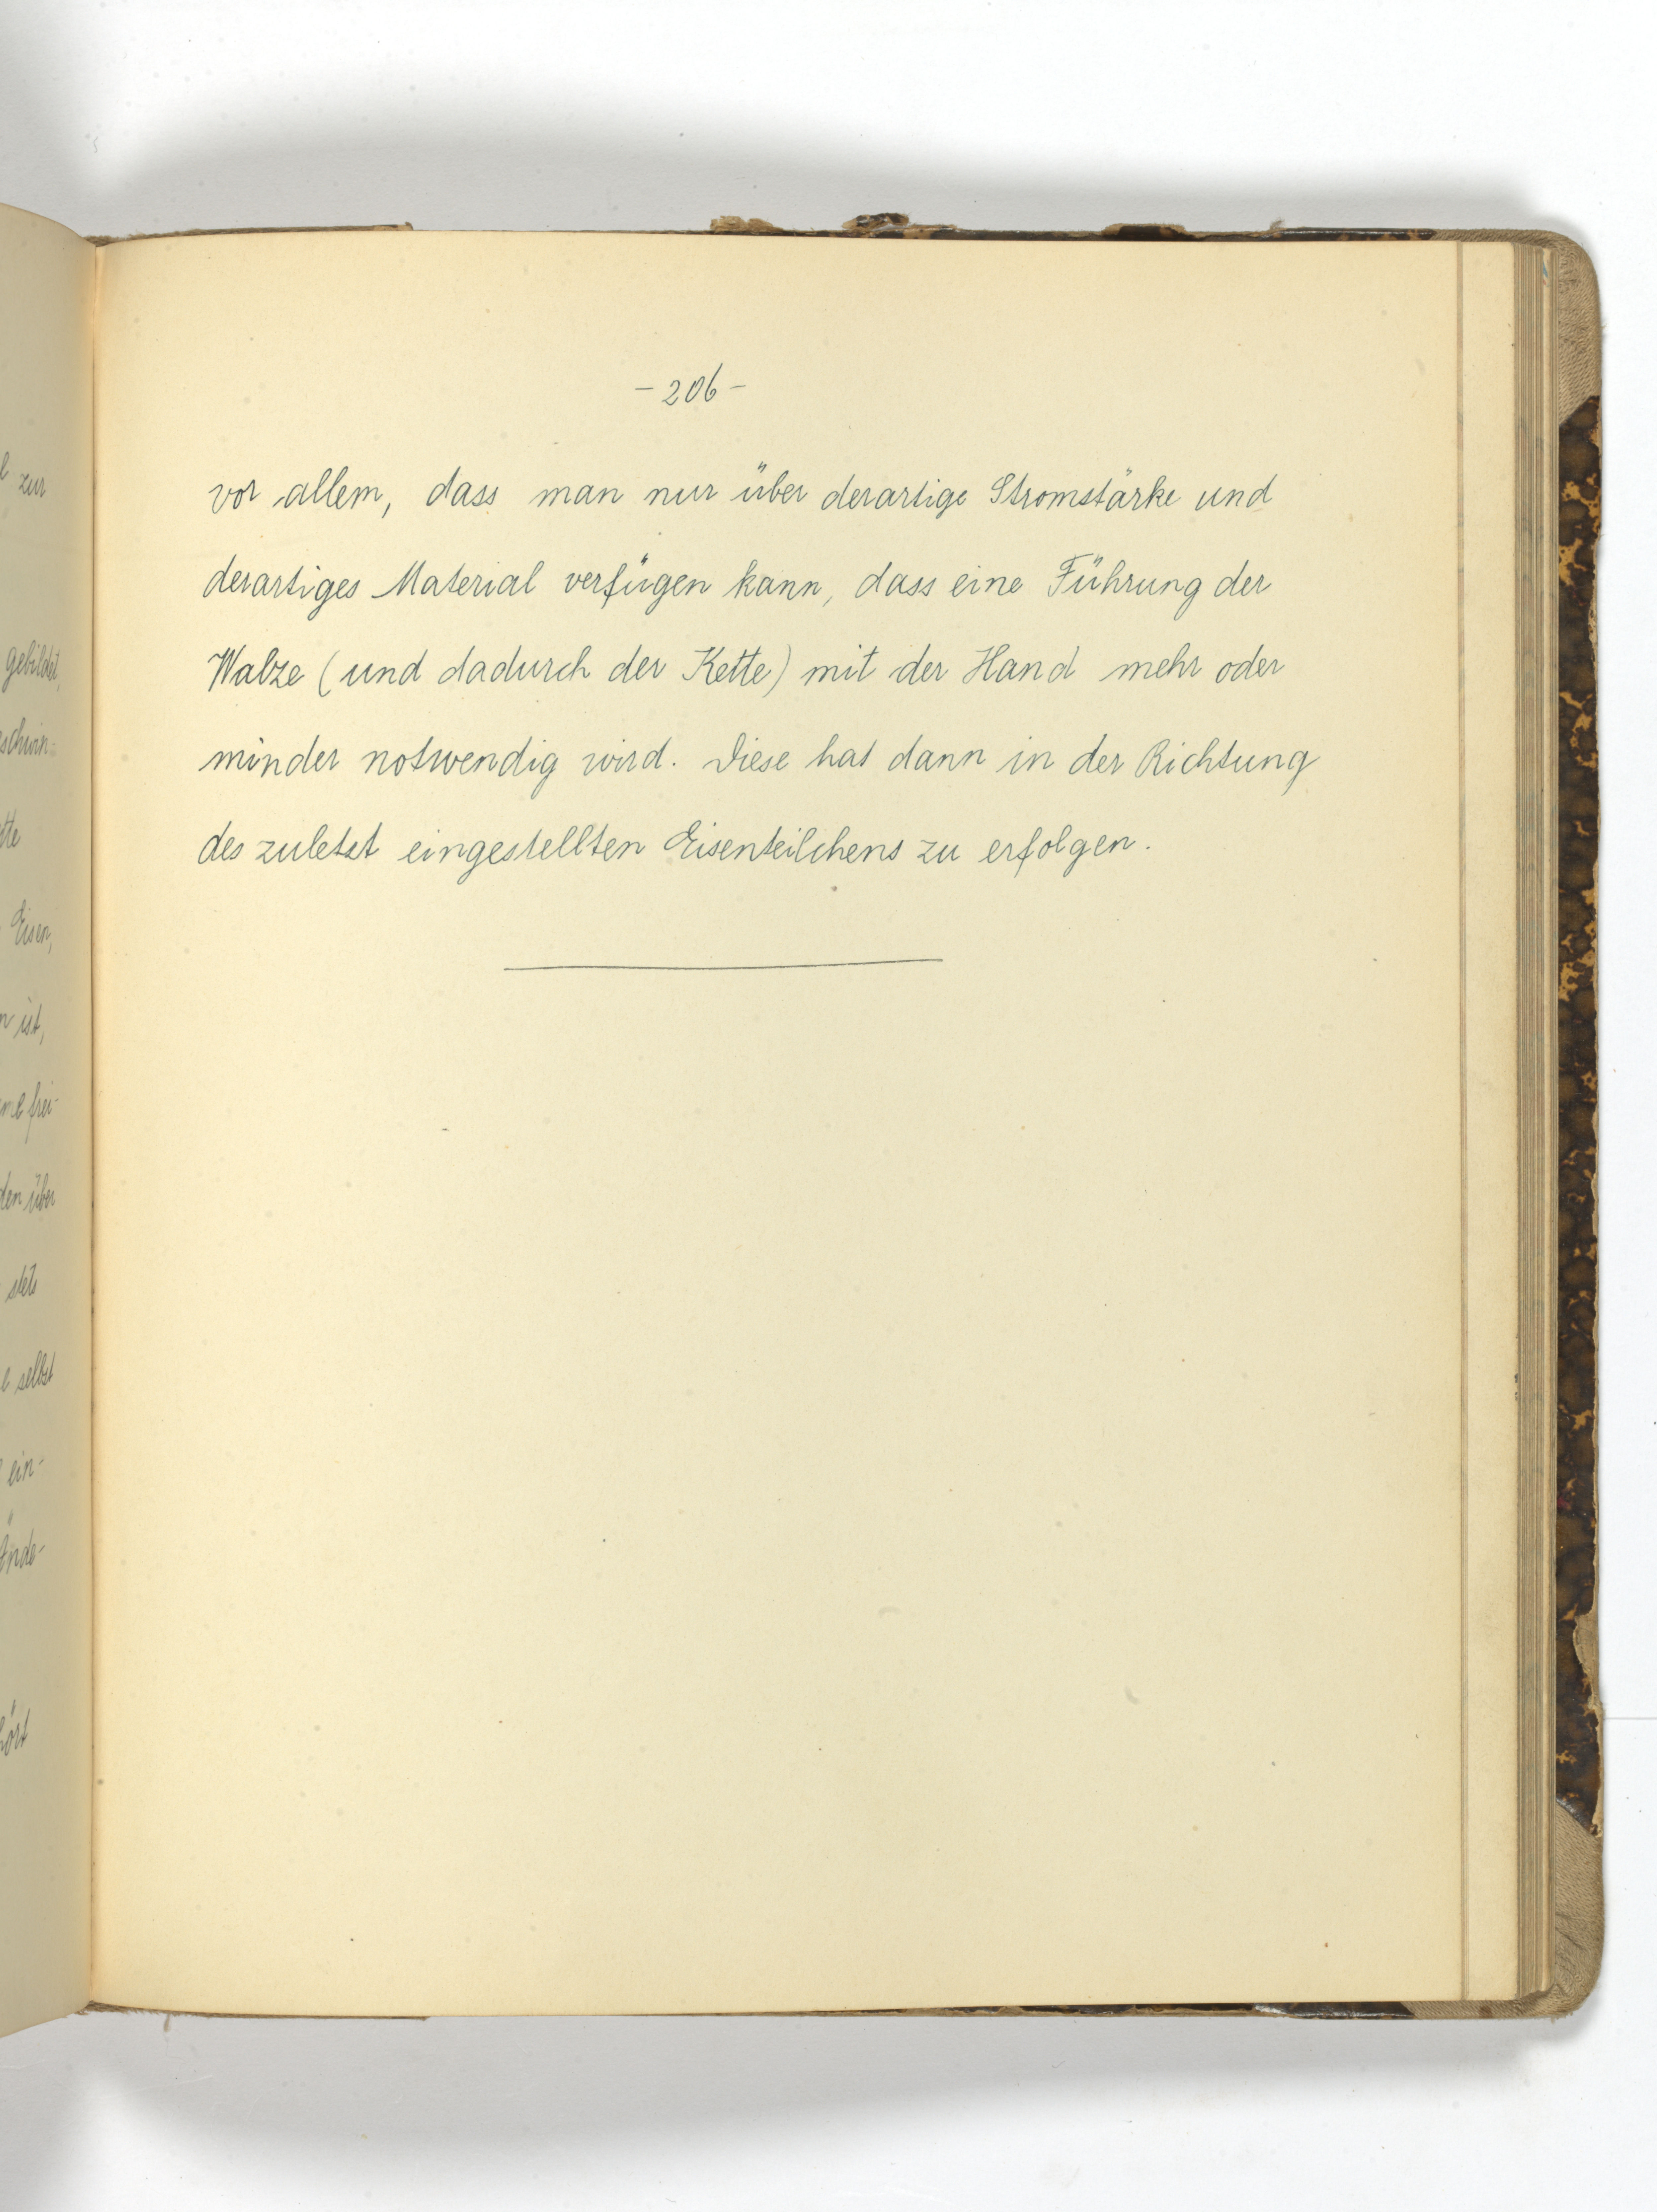 l zur
gebildet,
schwin-
tte
Eisen,
n ist,
me frei-
den über
stets
e selbst
ein-
ände-
hört
- 206 -
vor allem, dass man nur über derartige Stromstärke und
derartiges Material verfügen kann, dass eine Führung der
Walze (und dadurch der Kette) mit der Hand mehr oder
minder notwendig wird. Diese hat dann in der Richtung
des zuletzt eingestellten Eisenteilchens zu erfolgen.